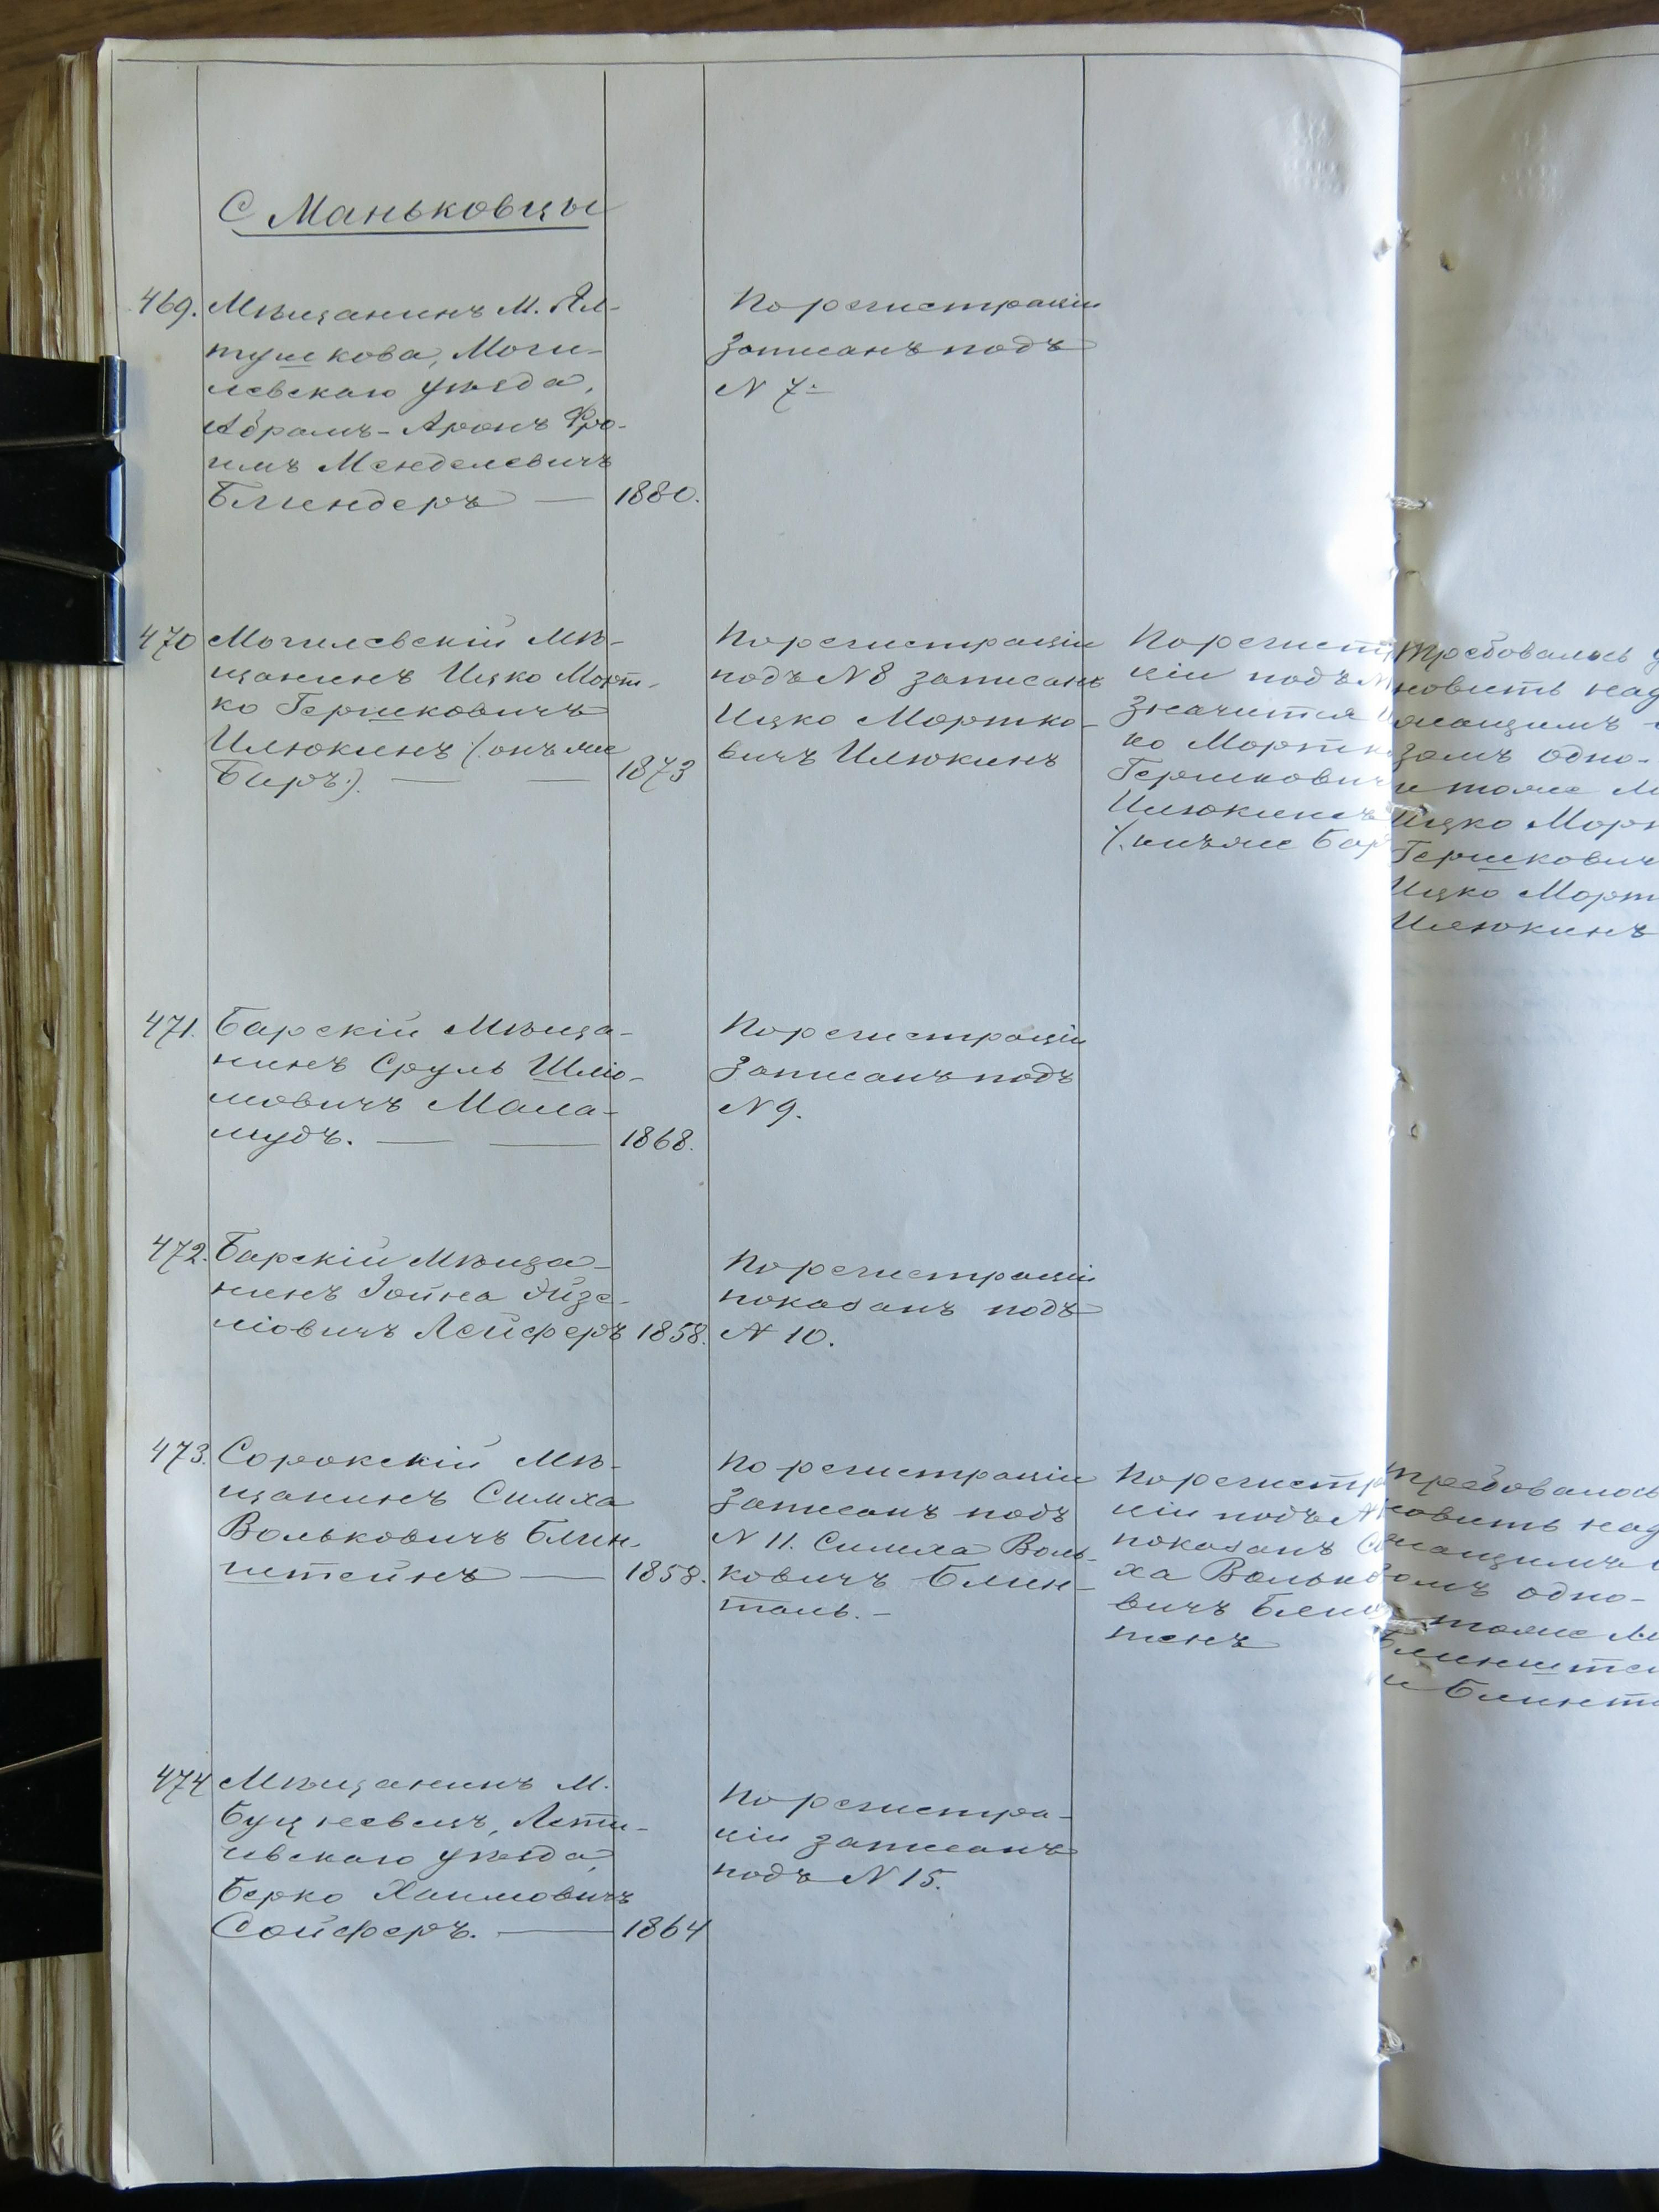 С Маньковцы
469. Мѣщанинъ М. Ял-
тушкова, Моги-
левскаго уѣзда,
Абрамъ-Аронъ Фро-
имъ Менделевичъ
Блиндеръ — 1880.
По регистраціи
записанъ подъ
N 7.
470 Могилевскій мѣ-
щанинъ Ицко Морт-
ко Гершковичъ
Илюкинъ (: онъ же
Биръ :). — — 1873
По регистраціи
подъ N 8 записанъ
Ицко Мортко-
вичъ Илюкинъ
По регист
ціи подъ N
значится
ко Мортк
Гершкович
Илюкинъ
(: онъ же Бар
Требовалось
новить над
лежащимъ
зомъ одно-
и тоже
Ицко Морт
Гершкович
Ицко Морт
Илюкинъ
471. Барскій мѣща-
нинъ Сруль Шліо-
мовичъ Мала-
мудъ. — — 1868.
По регистраціи
записанъ подъ
N 9.
472. Барскій мѣща-
нинъ Іойна Эйзе-
ліовичъ Лейферъ 1858.
По регистраціи
показанъ подъ
N 10.
473. Сорокскій мѣ-
щанинъ Симха
Вольковичъ Блин-
штейнъ — 1858.
По регистраціи
записанъ подъ
N 11. Симха Воль-
ковичъ Блин-
таль. -
По регистр
ціи подъ N
показанъ
ха Волько
вичъ Блин
тенъ
Требовалось
новить над
лежащимъ
зомъ одно-
тоже
Блинштей
и Блинт
474 Мѣщанинъ М.
Буцневецъ, Лети-
чевскаго уѣзда,
Берко Хаимовичъ
Сойферъ. — 1864
По регистра-
ціи записанъ
подъ N 15.